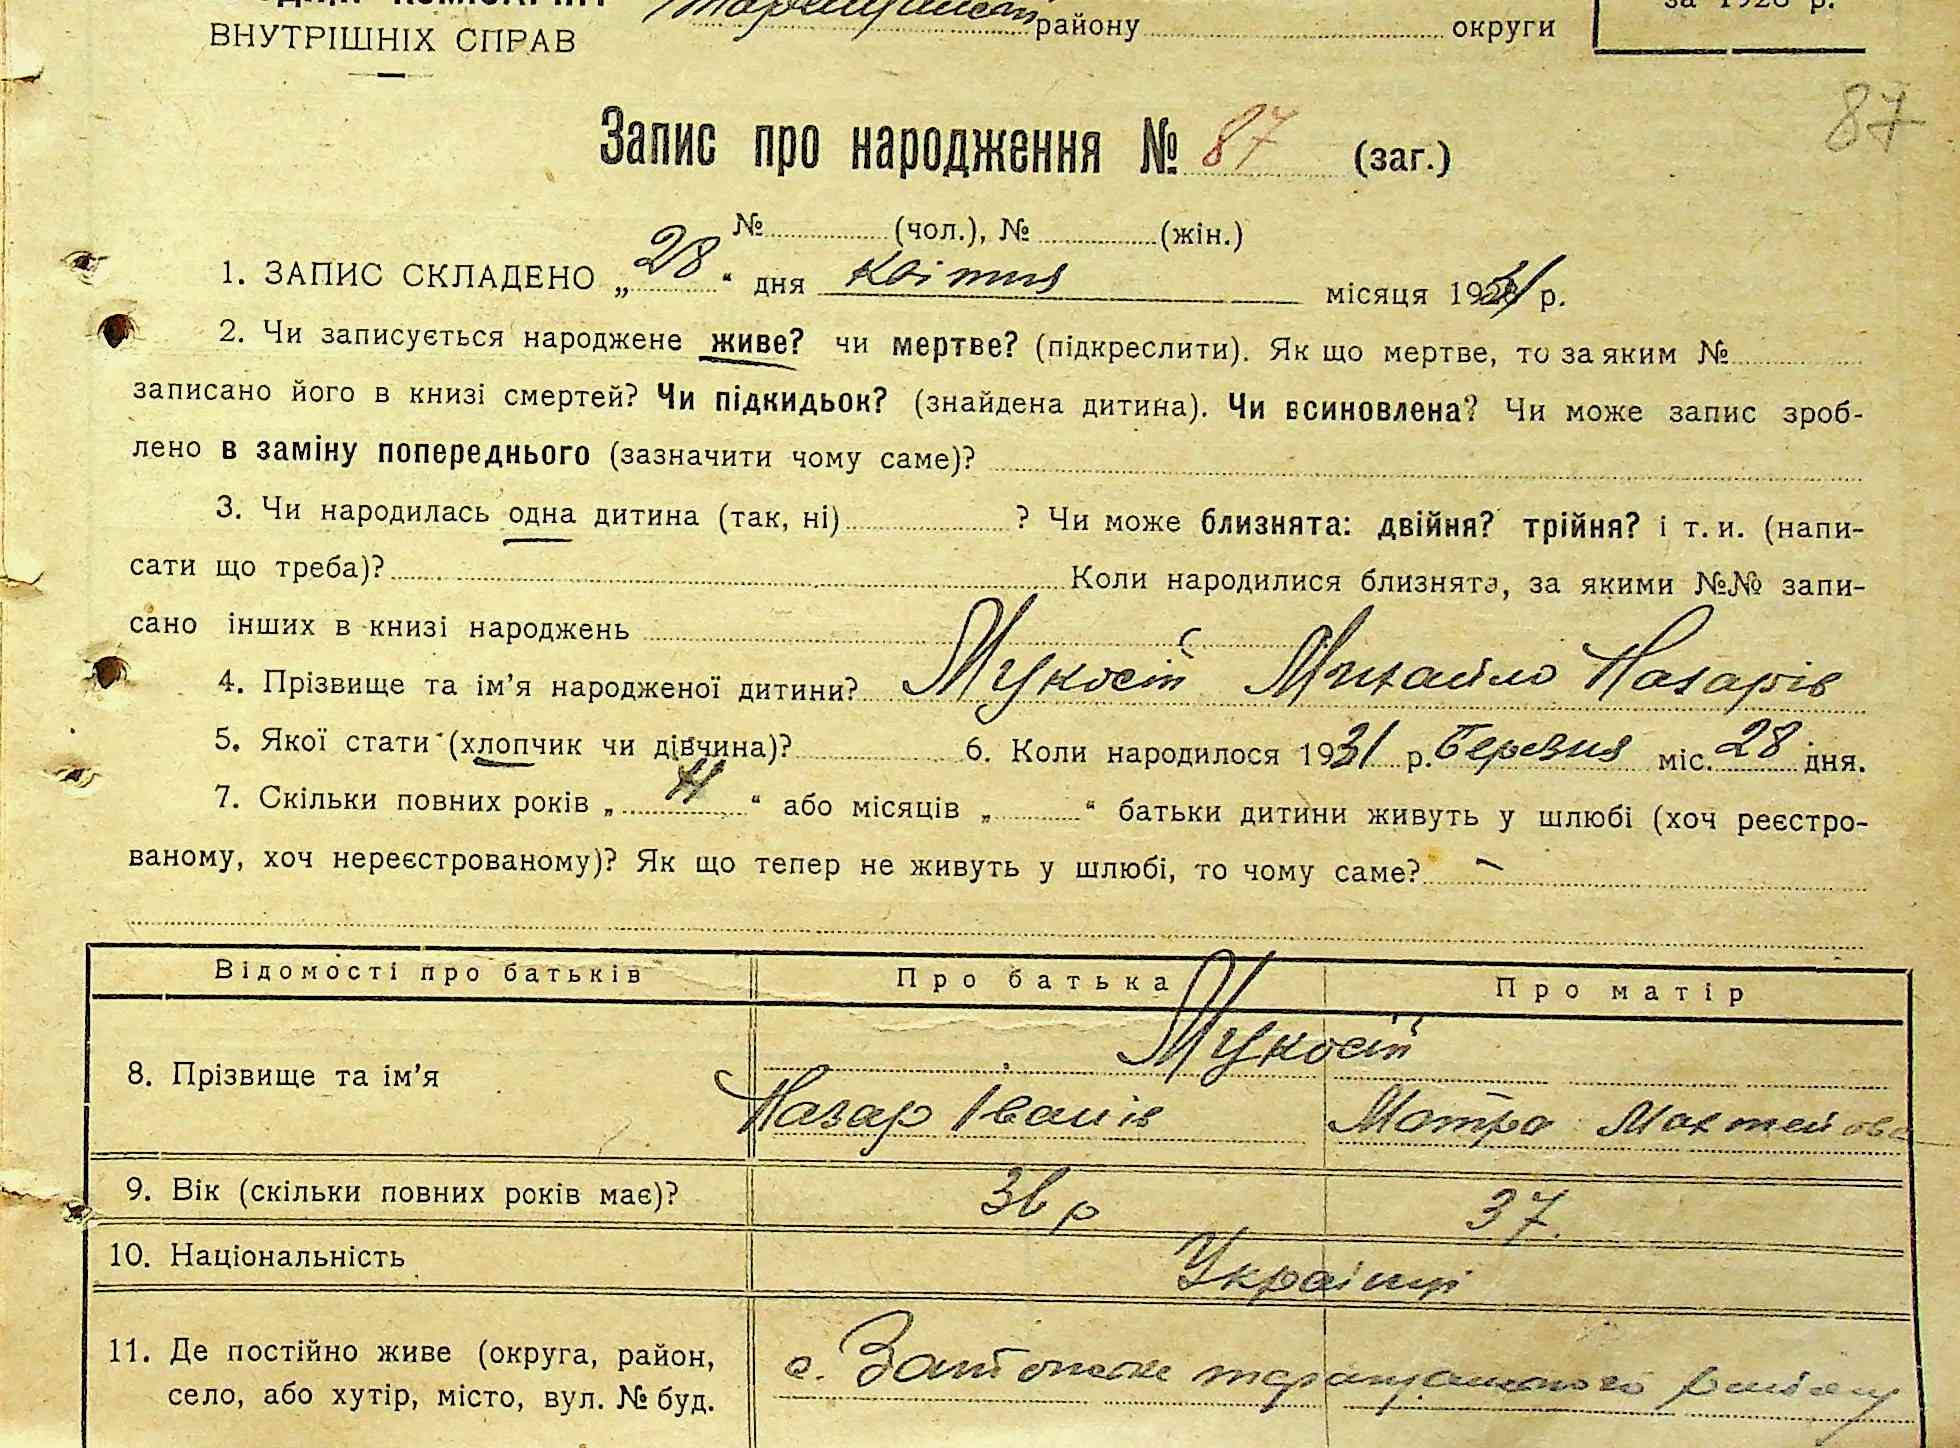 ВНУТРІШНІХ СПРАВ
району округи
за 1928 р.
87
Запис про народження № 87 (заг.)
№ (чол.), № (жін.)
1. ЗАПИС СКЛАДЕНО „28“ дня квітня місяця 1931 р.
2. Чи записується народжене живе? чи мертве? (підкреслити). Як що мертве, то за яким №
записано його в книзі смертей? Чи підкидьок? (знайдена дитина). Чи всиновлена? Чи може запис зроб-
лено в заміну попереднього (зазначити чому саме)?
3. Чи народилась одна дитина (так, ні) ? Чи може близнята: двійня? трійня? і т. и. (напи-
сати що треба)? Коли народилися близнята, за якими №№ запи-
сано інших в книзі народжень
4. Прізвище та ім’я народженої дитини? Мукосій Михайло Назарів
5. Якої стати (хлопчик чи дівчина)? 6. Коли народилося 1931 р. березня міс. 28 дня.
7. Скільки повних років „ “ або місяців „ “ батьки дитини живуть у шлюбі (хоч реєстро-
ваному, хоч нереєстрованому)? Як що тепер не живуть у шлюбі, то чому саме? –
Відомості про батьків Про батька Про матір
8. Прізвище та ім’я Мукосій
Назар Іванів Мотря
9. Вік (скільки повних років має)? 36 р 37.
10. Національність Українці
11. Де постійно живе (округа, район, с. таращанського району
село, або хутір, місто, вул. № буд.